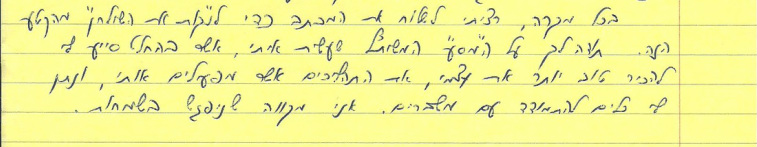 בכל מקרה, רציתי לשלוח את המכתב כדי "לנקות את השולחן" מהקטע
הזה. תודה לך על ה"מסע" המשותף שעשית איתי, אשר בהחלט סייע לי
להכיר טוב יותר את עצמי, את התהליכים אשר מפעילים אותי, ונתן
לי כלים להתמודד עם משברים. אני מקווה שניפגש בשמחות.